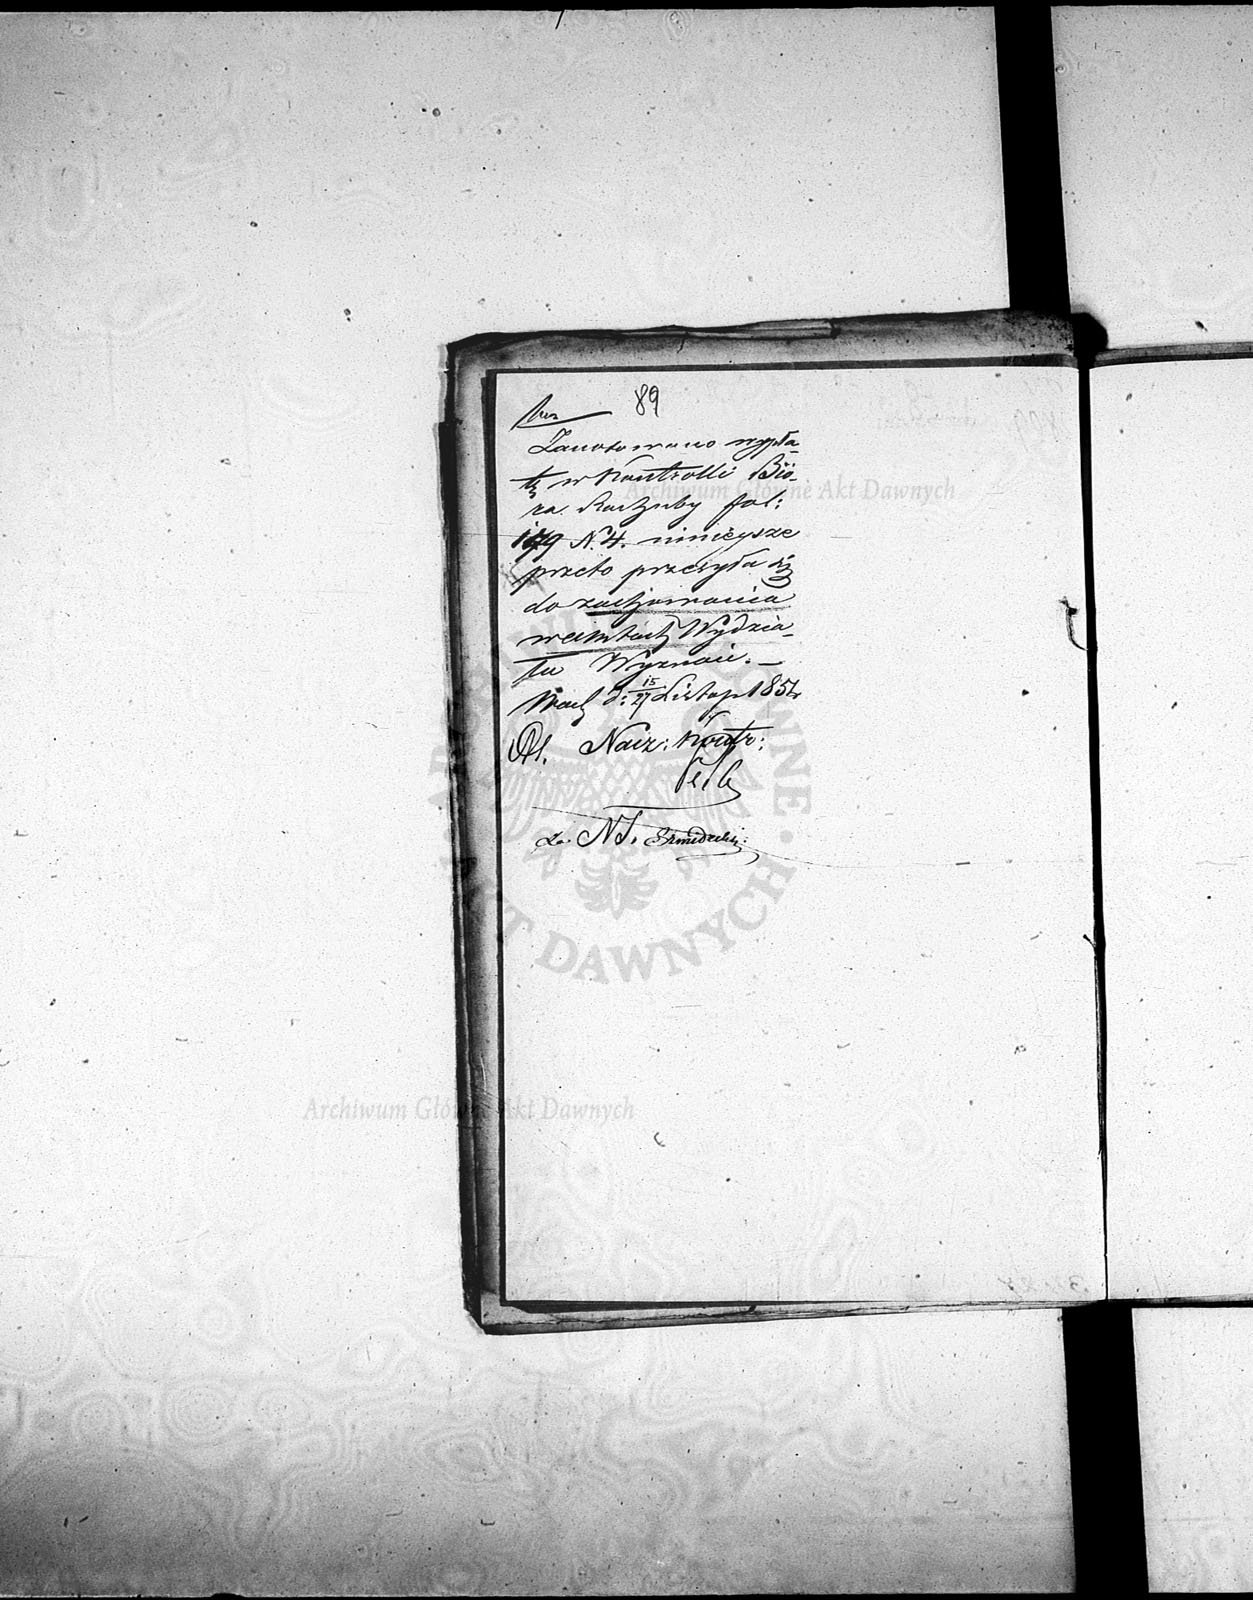 89
Zanotowano wypła-
tę w Kontrolli Bió-
ra Rachuby fol:
179 N. 4. ninieysze
przeto przesyła się
do zachowania
w aktach Wydzia-
łu Wyznań. —
Wach d: 15/27 Listop 185
Nacz: Kontr:
Za N S.
Archiwum Główne Akt Dawnych
Archiwum Główne Akt Dawnych
AKT DAWNYCH